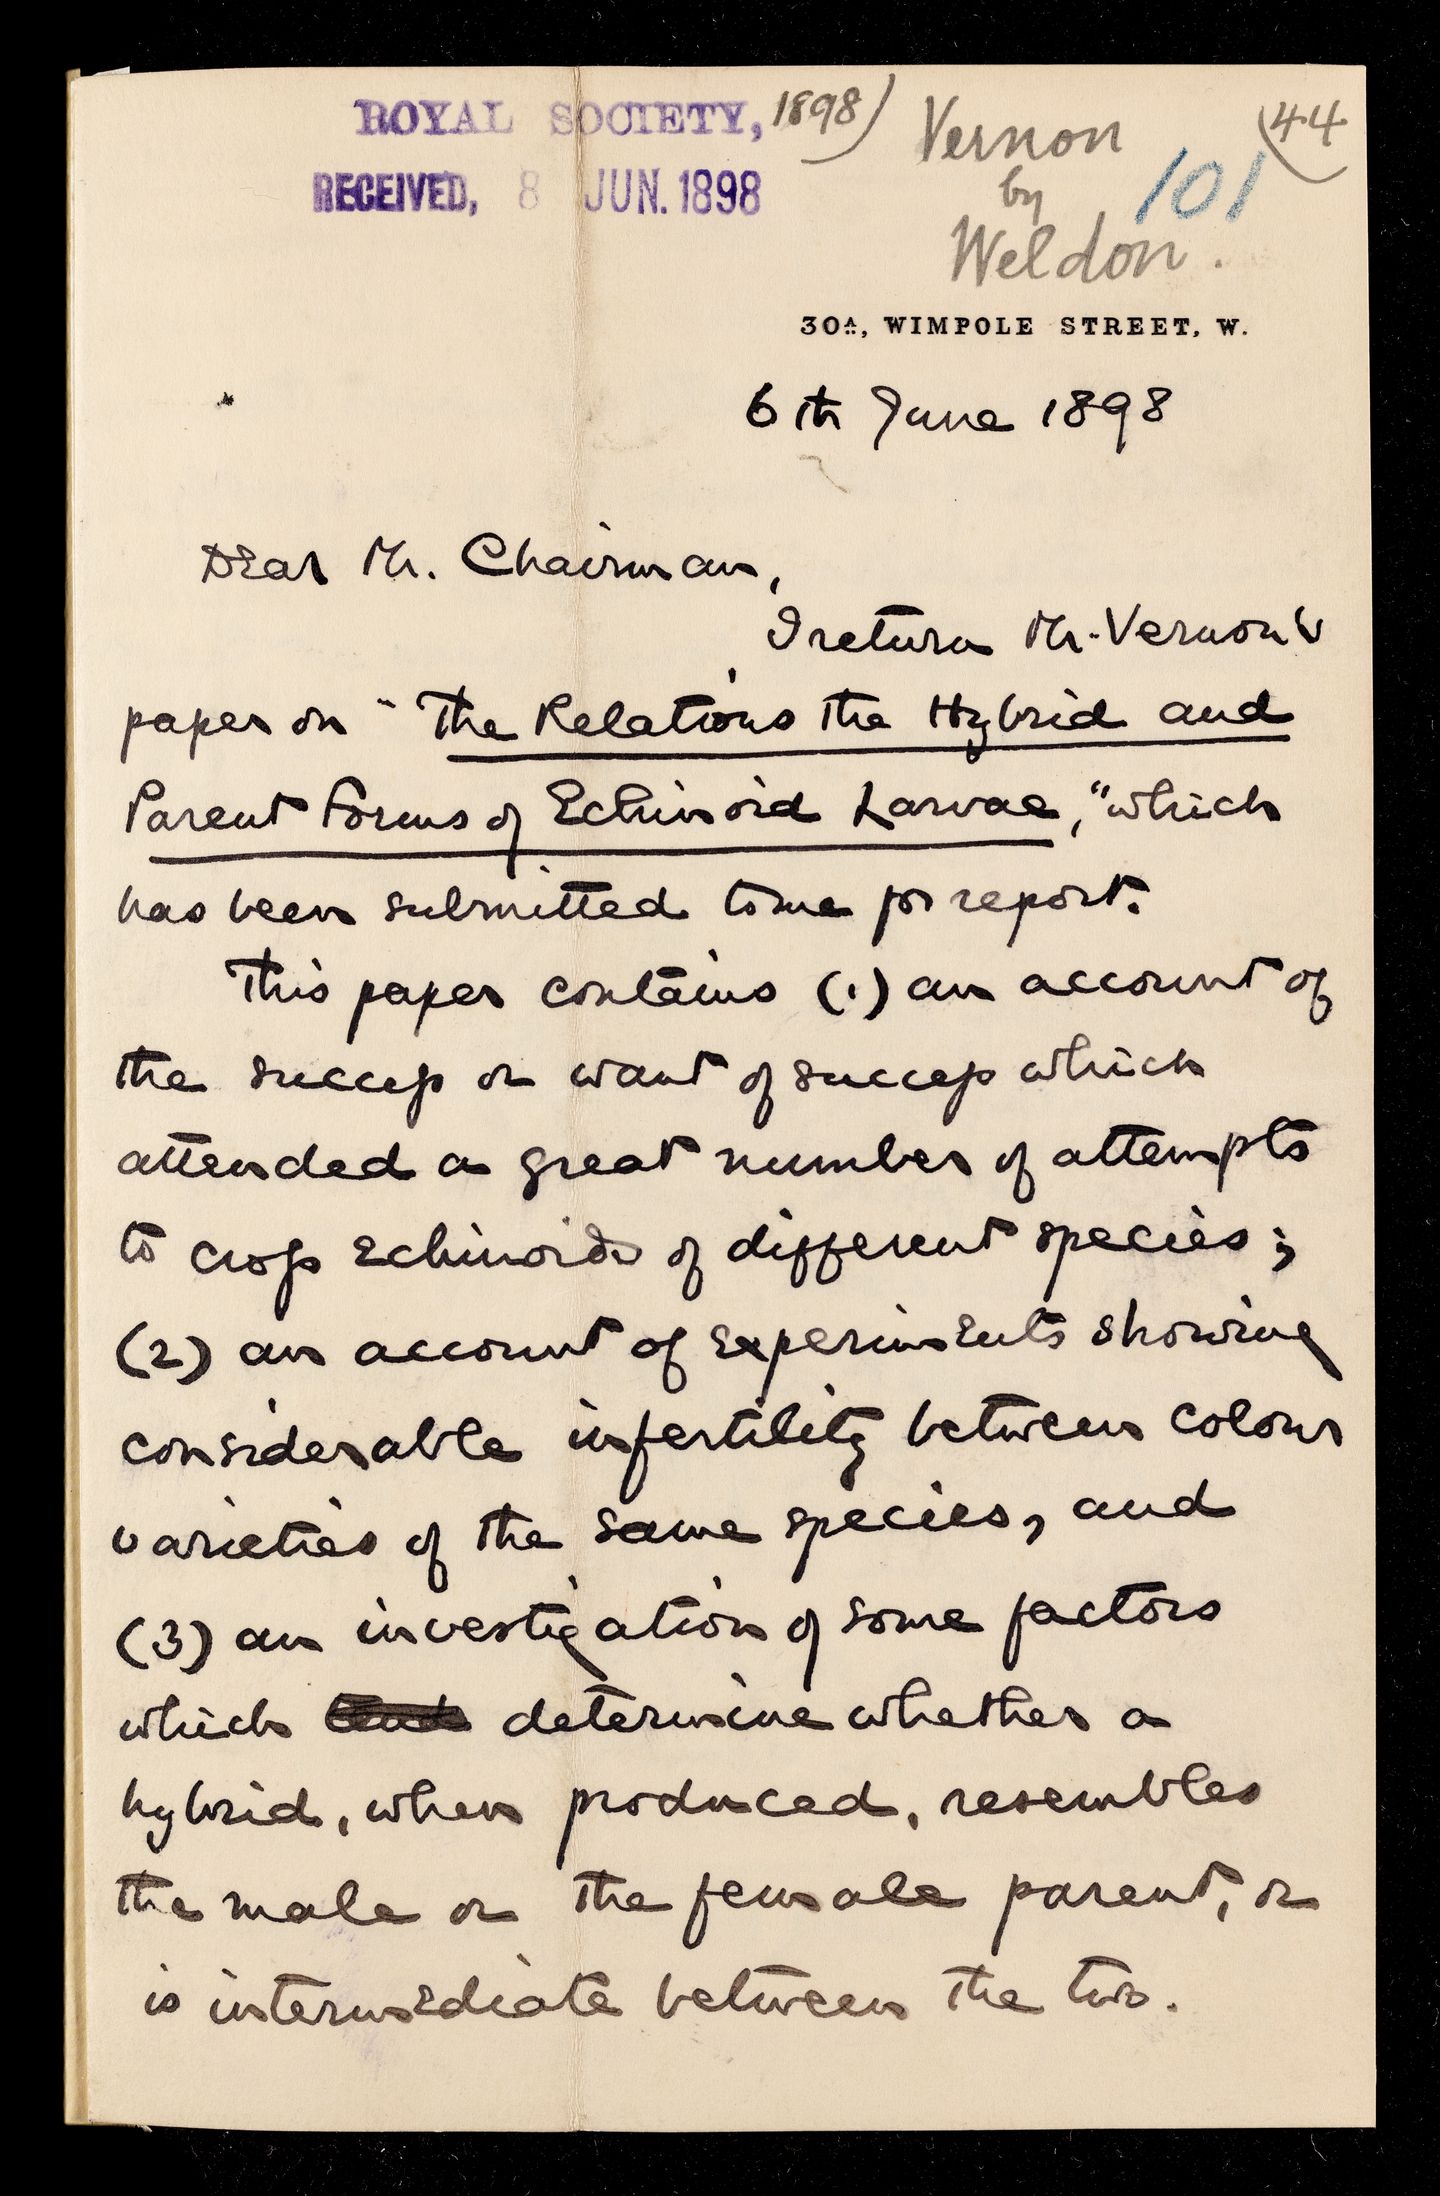 ROYAL SOCIETY, 1898)
RECEIVED, 8 JUN. 1898
Vernon
by
Weldon.
101
(44
30A, WIMPOLE STREET, W.
6th June 1898
Dear Mr. Chairman,
I return Mr. Vernon's
paper on "The Relations the Hybrid and
Parent Forms of Echinoid Larvae," which
has been submitted to me for report.
This paper contains (1) an account of
the success or want of success which
attended a great number of attempts
to cross Echinoids of different species;
(2) an account of experiments showing
considerable infertility between colour
varieties of the same species, and
(3) an investigation of some factors
which determine whether a
hybrid, when produced, resembles
the male or the female parent, or
is intermediate between the two.